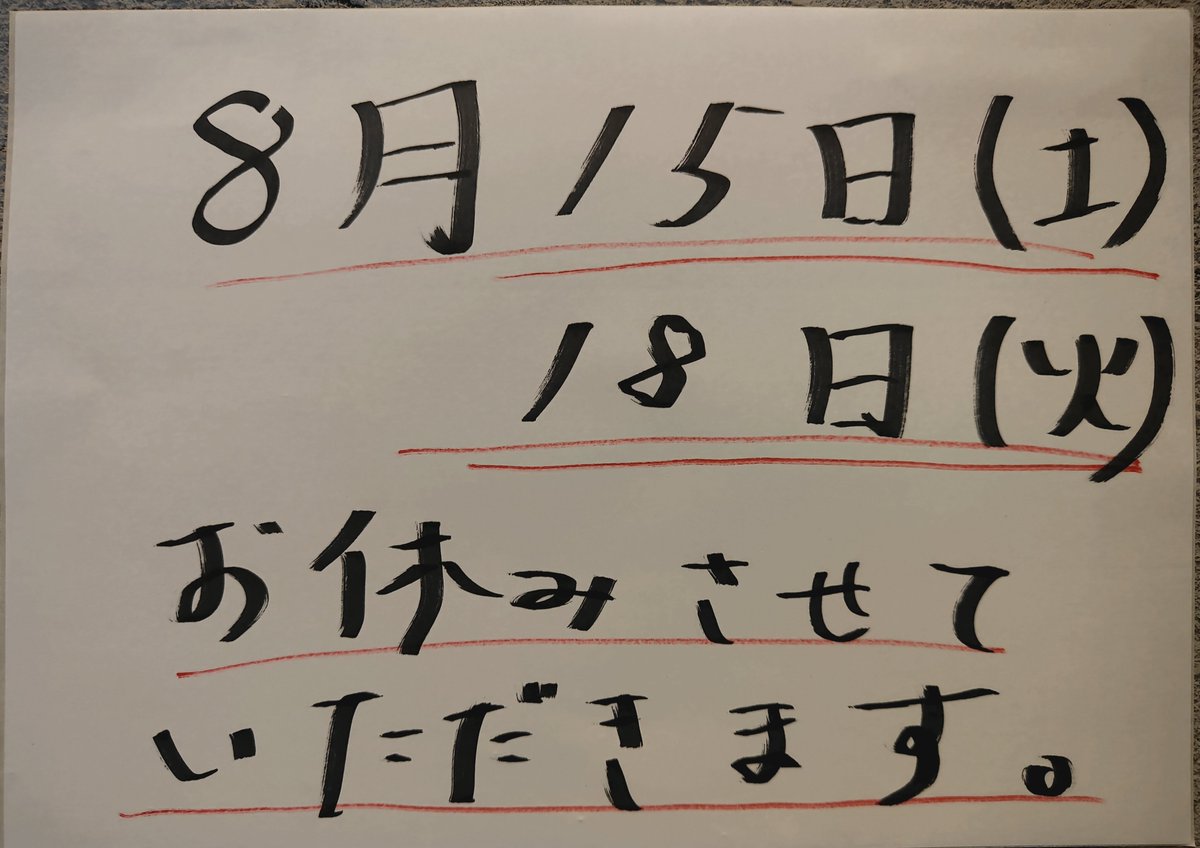 8月15日(土)
18日(火)
お休みさせて
いただきます。